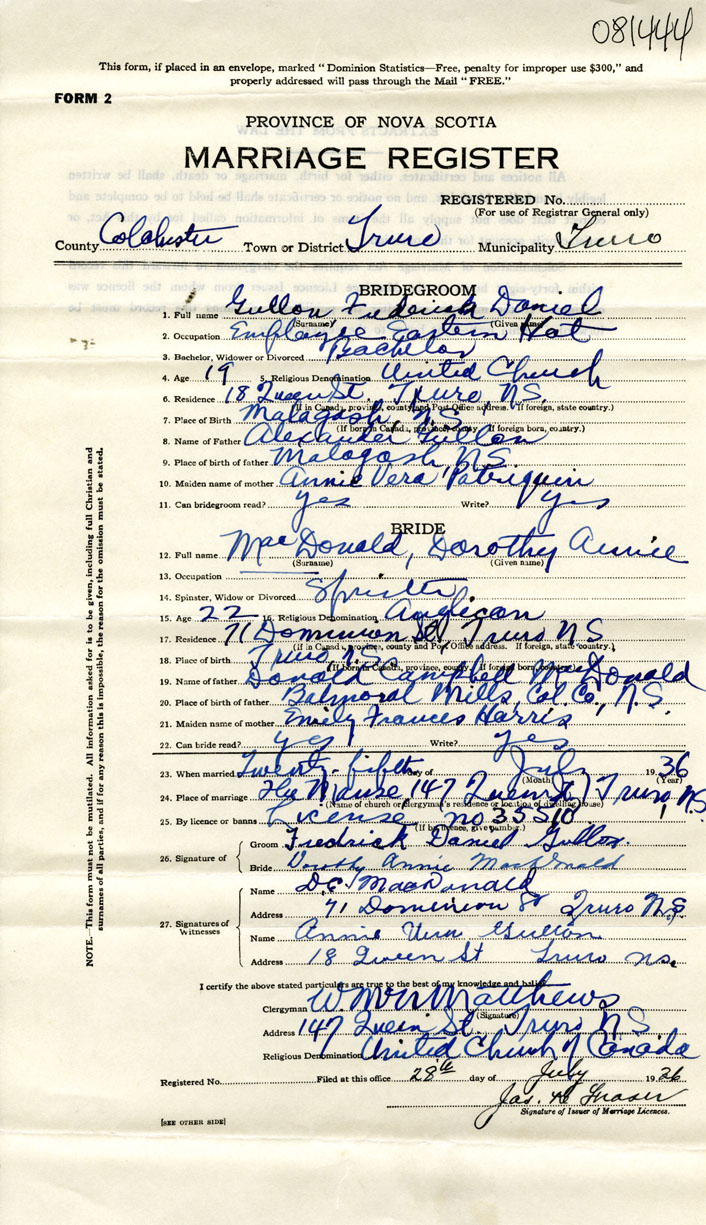 081444
This form, if placed in an envelope, marked "Dominion Statistics—Free, penalty for improper use $300," and
properly addressed will pass through the Mail "FREE."
FORM 2
PROVINCE OF NOVA SCOTIA
MARRIAGE REGISTER
REGISTERED No.
(For use of Registrar General only)
County Colchester Town or District Truro Municipality Truro
BRIDEGROOM
1. Full name Gullon Frederick Daniel
(Surname) (Given name)
2. Occupation Employee Eastern Hat
3. Bachelor, Widower or Divorced Bachelor
4. Age 19 5. Religious Denomination United Church
6. Residence 18 Queen St. Truro, N.S.
(If in Canada, province, county and Post Office address. If foreign, state country.)
7. Place of Birth Malagash N.S.
(If born in Canada, province, county. If foreign born, country.)
8. Name of Father Alexander Gullon
9. Place of birth of father Malagash N.S.
10. Maiden name of mother Annie Vera Patriquin
11. Can bridegroom read? yes Write? yes
BRIDE
12. Full name MacDonald, Dorothy Annie
(Surname) (Given name)
13. Occupation
14. Spinster, Widow or Divorced Spinster
15. Age 22 16. Religious Denomination Anglican
17. Residence 71 Dominion St, Truro N S
(If in Canada, province, county and Post Office address. If foreign, state country.)
18. Place of birth Truro N.S.
(If born in Canada, province, county. If foreign born, country.)
19. Name of father Donald Campbell MacDonald
20. Place of birth of father Balmoral Mills, Col. Co, N.S.
21. Maiden name of mother Emily Frances Harris
22. Can bride read? yes Write? yes
23. When married Twenty-fifth day of July 1936
(Month) (Year)
24. Place of marriage The Manse, 147 Queen St, Truro, N.S.
(Name of church or clergyman's residence or location of dwelling house)
25. By licence or banns License no 35510
(If by licence, give number.)
26. Signature of
Groom Fredrick Daniel Gullon.
Bride Dorothy Annie MacDonald
27. Signatures of
Witnesses
Name D.C. MacDonald
Address 71 Dominion St Truro N.S.
Name Annie Vera Gullon
Address 18 Queen St Truro N.S.
I certify the above stated particulars are true to the best of my knowledge and belief.
Clergyman Matthews
(Signature)
Address 147 Queen St. Truro N S
Religious Denomination United Church of Canada
Registered No. Filed at this office 28th day of July 1936
Jas. H Fraser
Signature of Issuer of Marriage Licences.
[SEE OTHER SIDE]
NOTE.—This form must not be mutilated. All information asked for is to be given, including full Christian and
surnames of all parties, and if for any reason this is impossible, the reason for the omission must be stated.